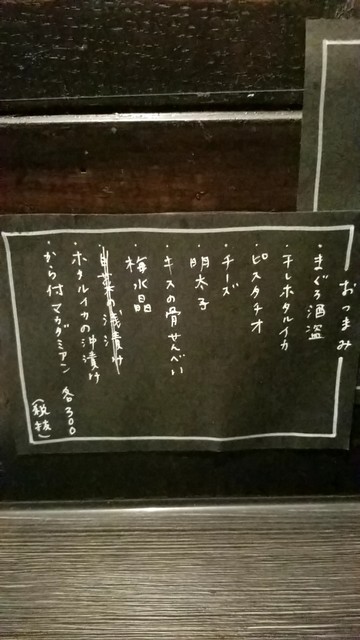 おつまみ
・まぐろ酒盗
・干しホタルイカ
・ピスタチオ
・チーズ
・明太子
・キスの骨せんべい
・梅水晶
・白菜の浅漬け
・ホタルイカの沖漬け
・から付マカダミアン 各300
(税抜)